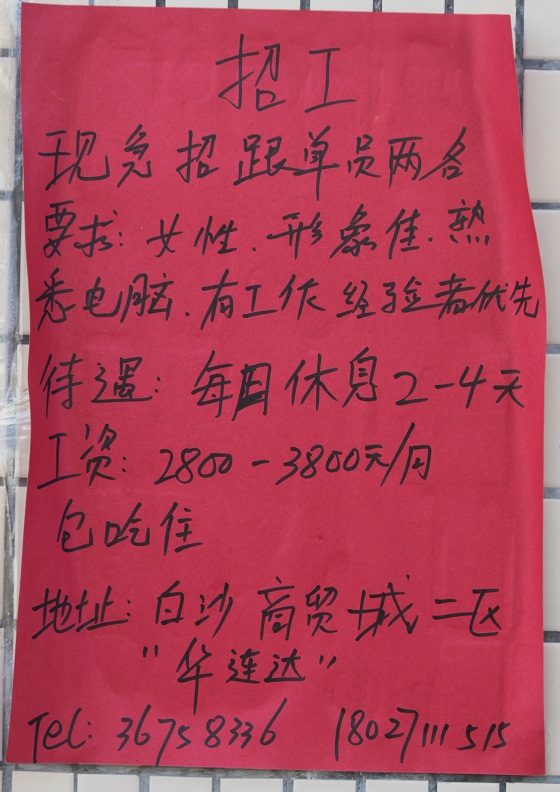 招工
现急招跟单员两名
要求:女性.形象佳.熟
悉电脑.有工作经验者优先
待遇:每月休息2-4天
工资:2800-3800元/月
包吃住
地址:白沙商贸城二区
"华连达"
Tel: 36758336 18027111515